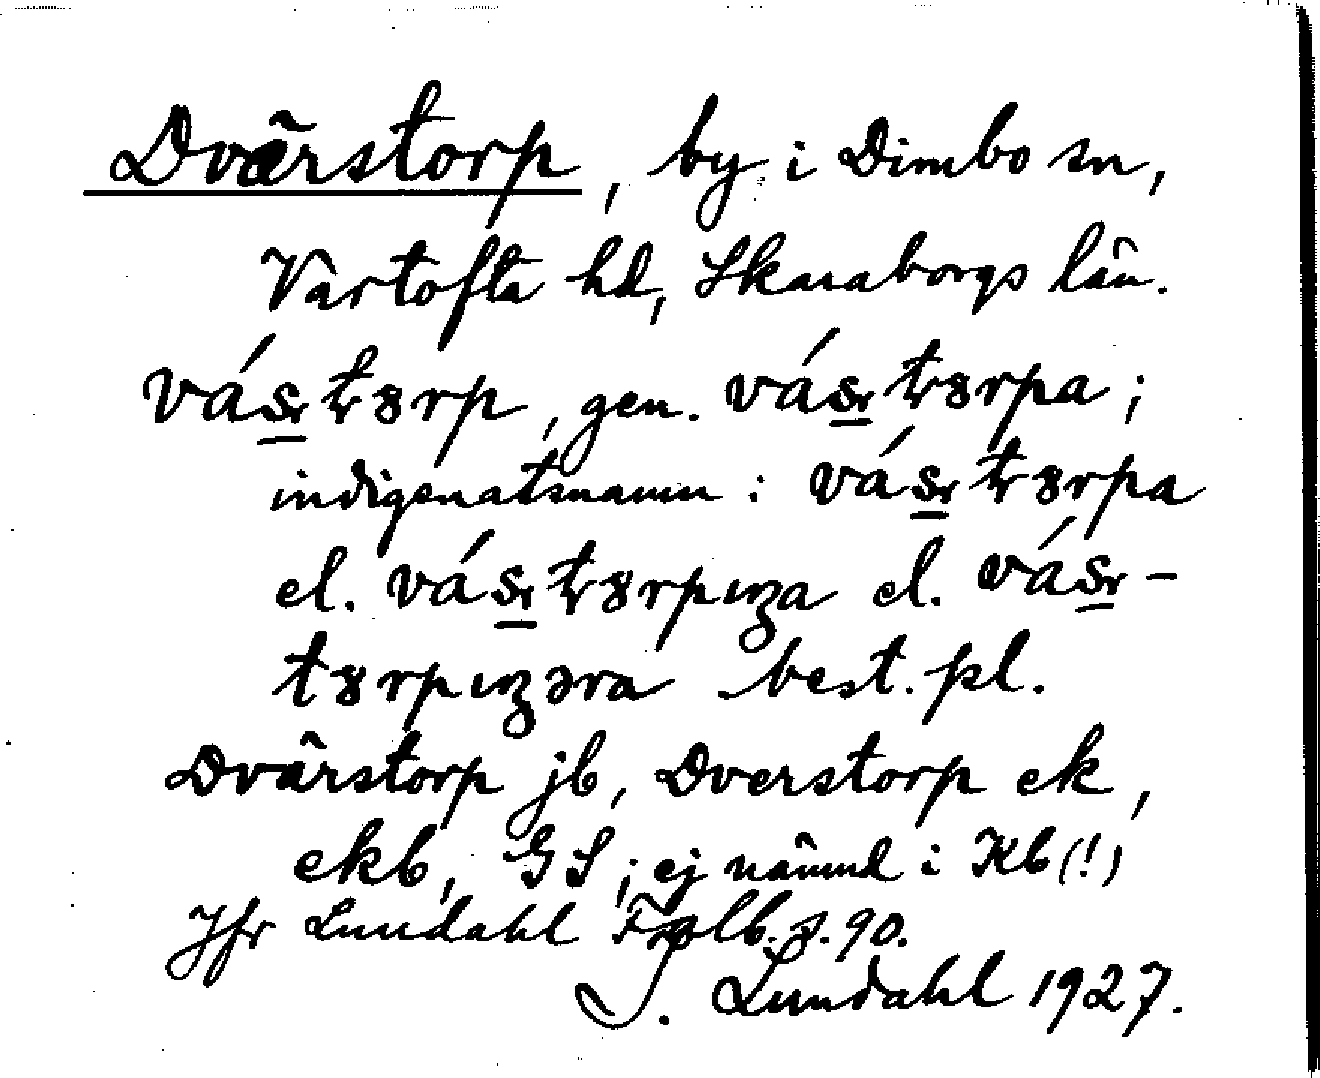 Dvärstorp, by i Dimbo sn,
Vartofta hd, Skaraborgs län.
vástȣrp, gen. vástȣrpa;
indigenatsnamn: vástȣrpa
el. vástȣrpıŋa el. vás-
tȣrpıŋəra best. pl.
Dvärstorp jb, Dverstorp ek,
ekb, GS; ej nämnd i Kb(!)
Jfr Lundahl Falb. s. 90.
I. Lundahl 1927.